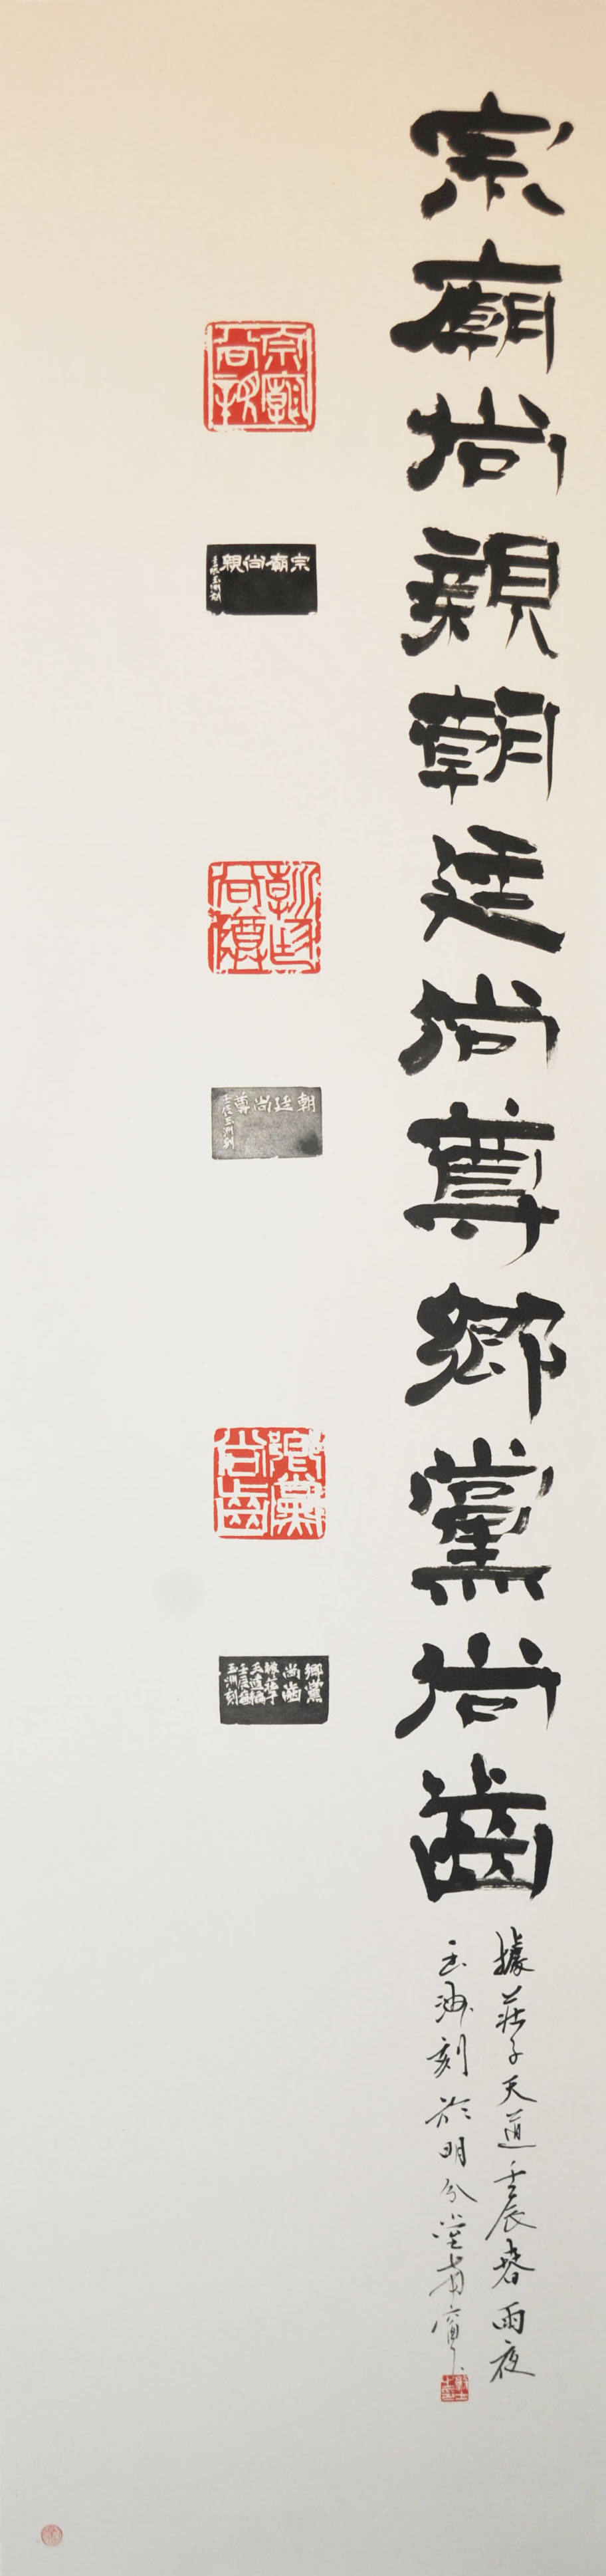 宗廟尚親朝廷尚尊鄉黨尚齒
據莊子天道壬辰春雨夜
玉洲刻於明分堂南窗
宗廟尚親
宗廟尚親
壬辰玉洲刻
朝廷尚尊
朝廷尚尊
壬辰玉洲刻
鄉黨尚齒
鄉黨
尚齒
據莊子
天道篇
壬辰春
玉洲刻